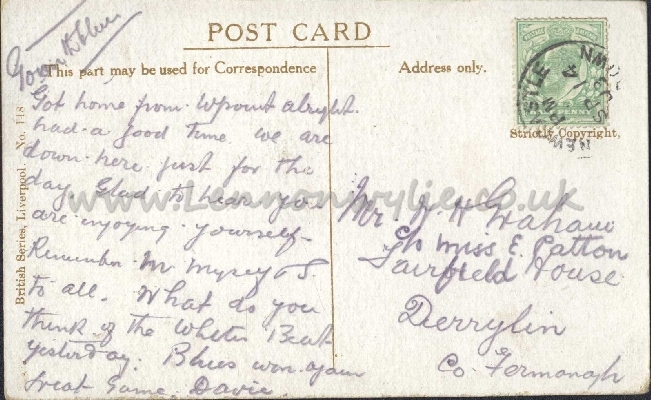 POST CARD
This part may be used for Correspondence
Address only.
Got home from W point alright.
had a good time we are
down here just for the
day. Glad to hear you
are enjoying yourself
Remember Mr
to all. What do you
think of the Whites Beat
yesterday. Blues won again
Great Game. Davie
Strictly Copyright.
Mr. H Graham
C/o Miss E. Patton
Fairfield House
Derrylin
Co. Fermanagh
British Series, Liverpool. No. 118
www.Lennonwylie.co.uk